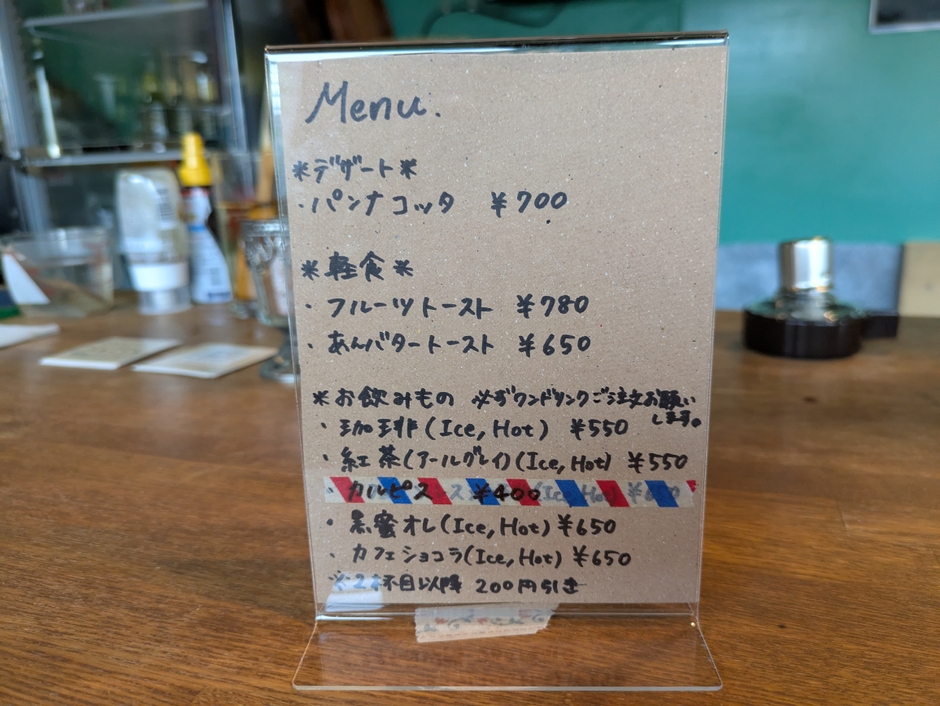 Menu.
*デザート*
・パンナコッタ ¥700
*軽食*
・フルーツトースト ¥780
・あんバタートースト ¥650
*お飲みもの 必ずワンドリンクご注文お願い
します。
・珈琲(Ice, Hot) ¥550
・紅茶(アールグレイ)(Ice, Hot) ¥550
・カルピス ¥400
・黒蜜オレ(Ice, Hot) ¥650
・カフェショコラ(Ice, Hot) ¥650
※2杯目以降 200円引き